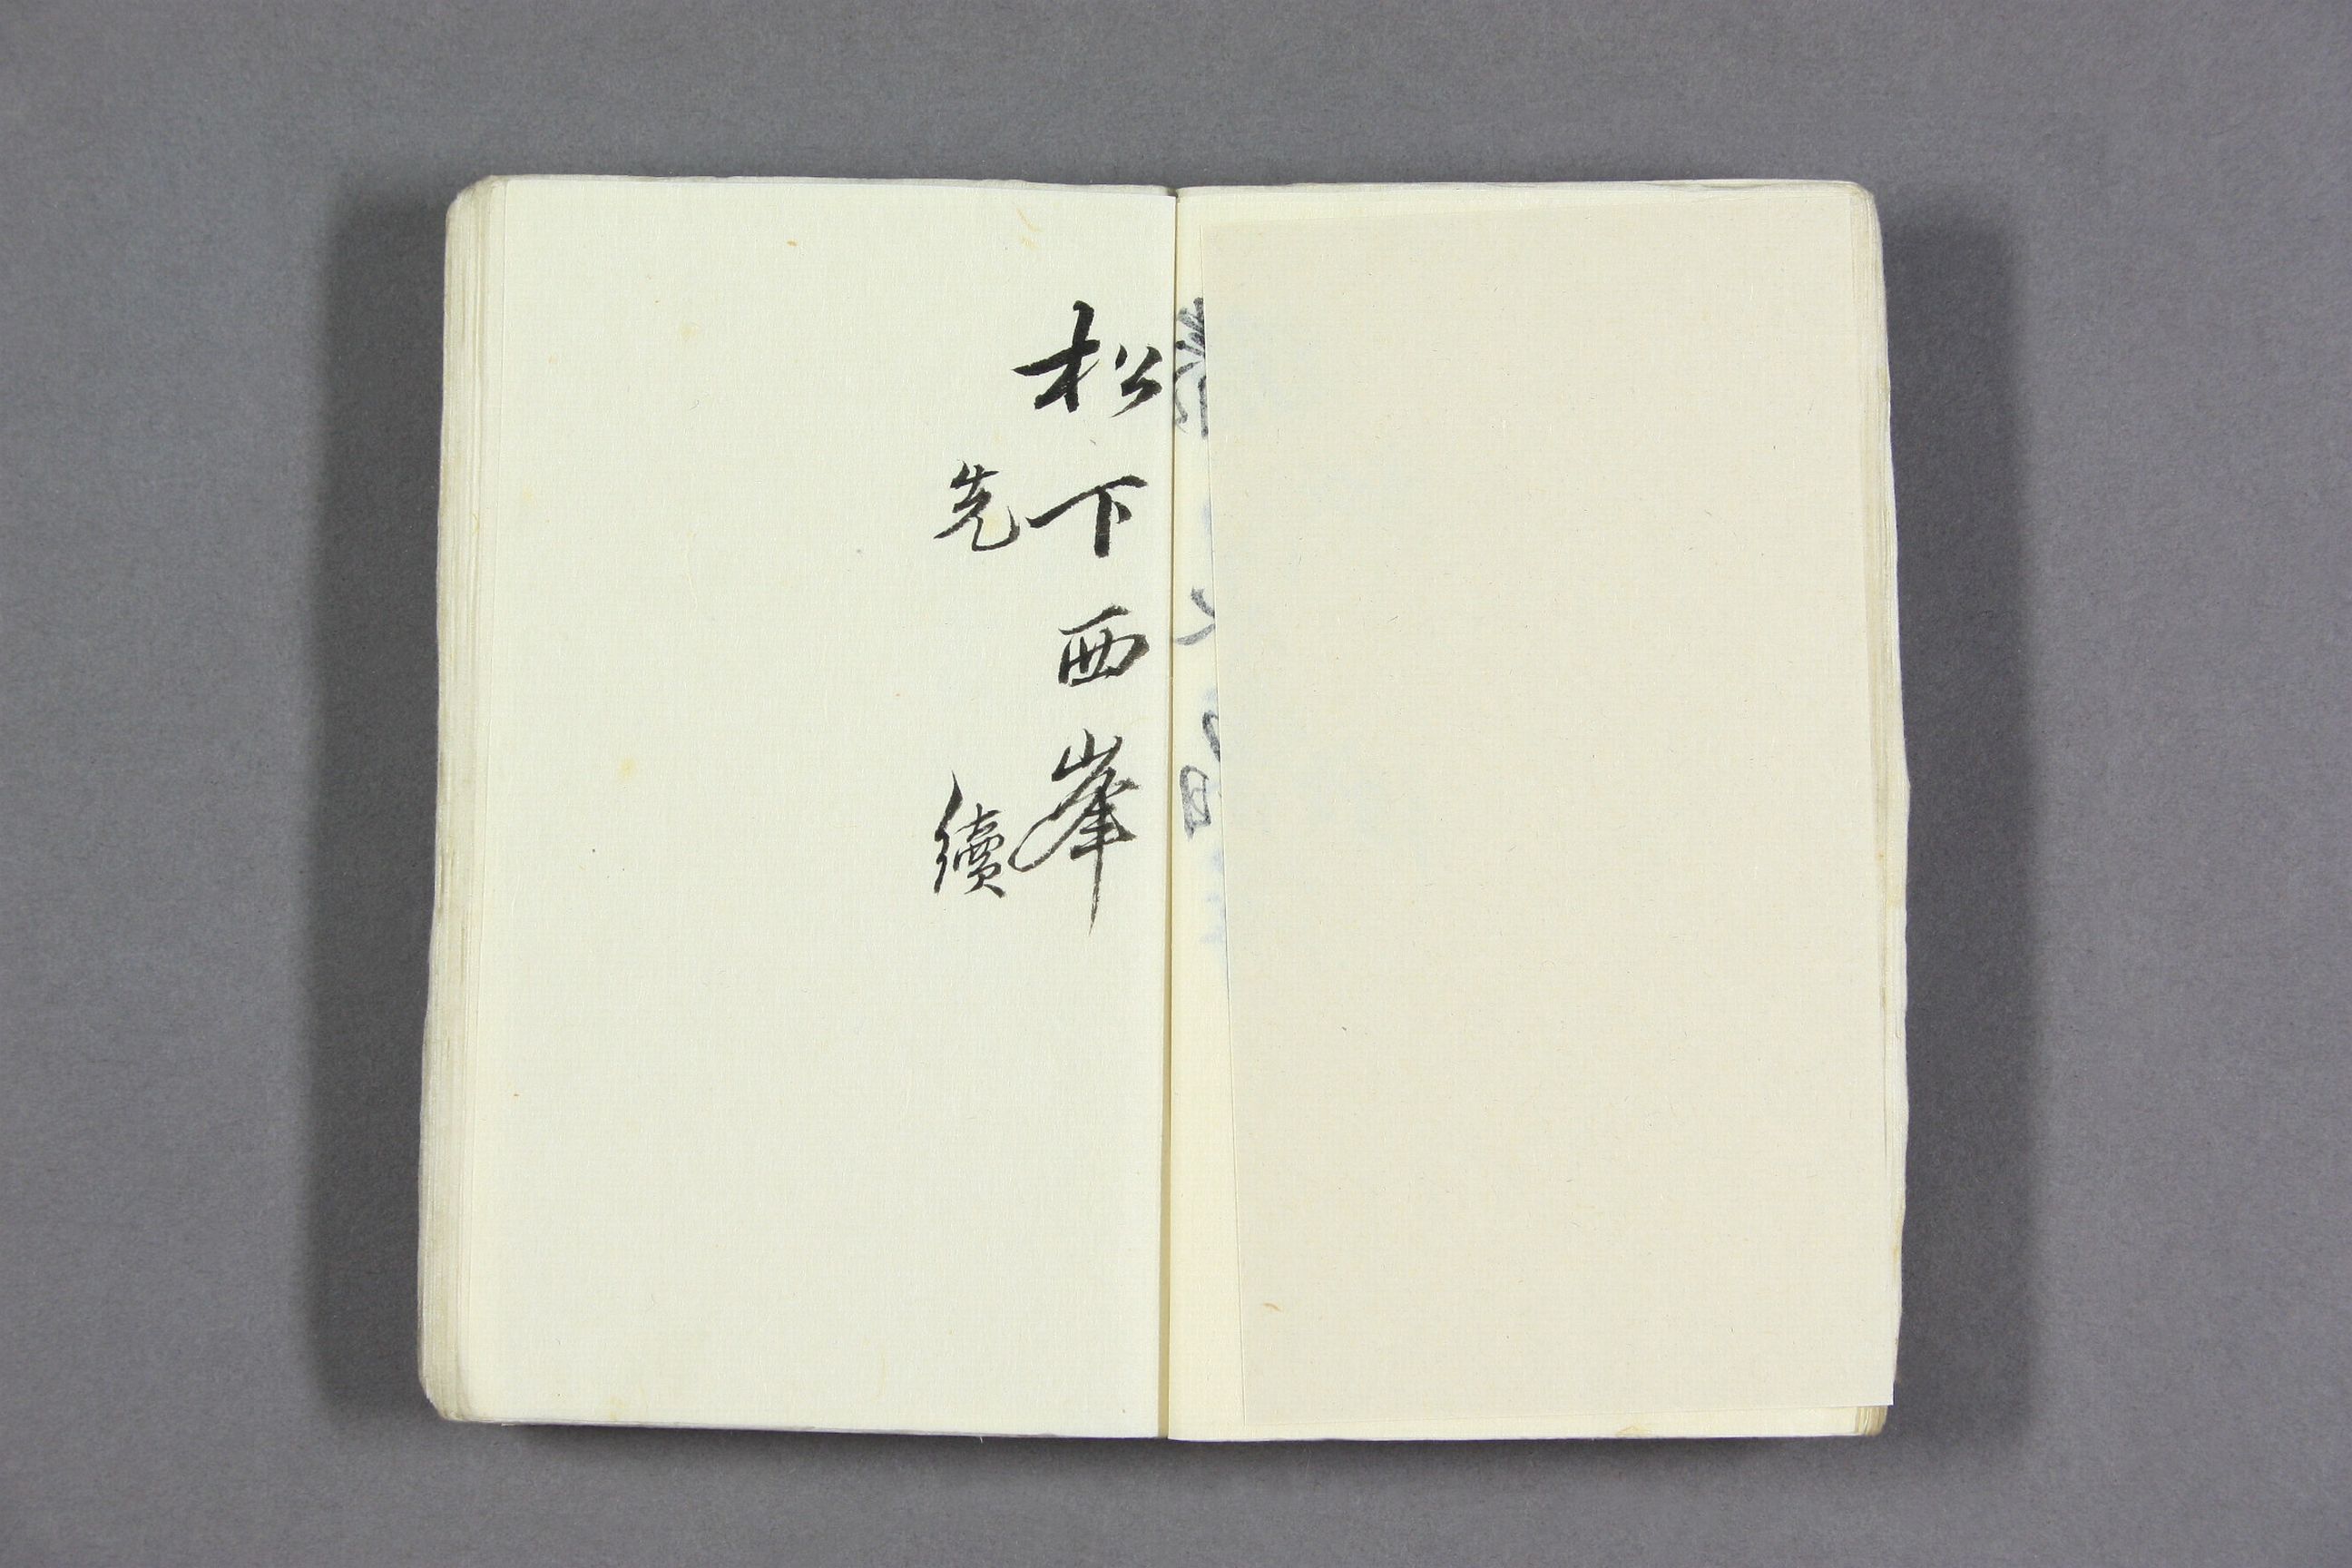 松下西峯
先續